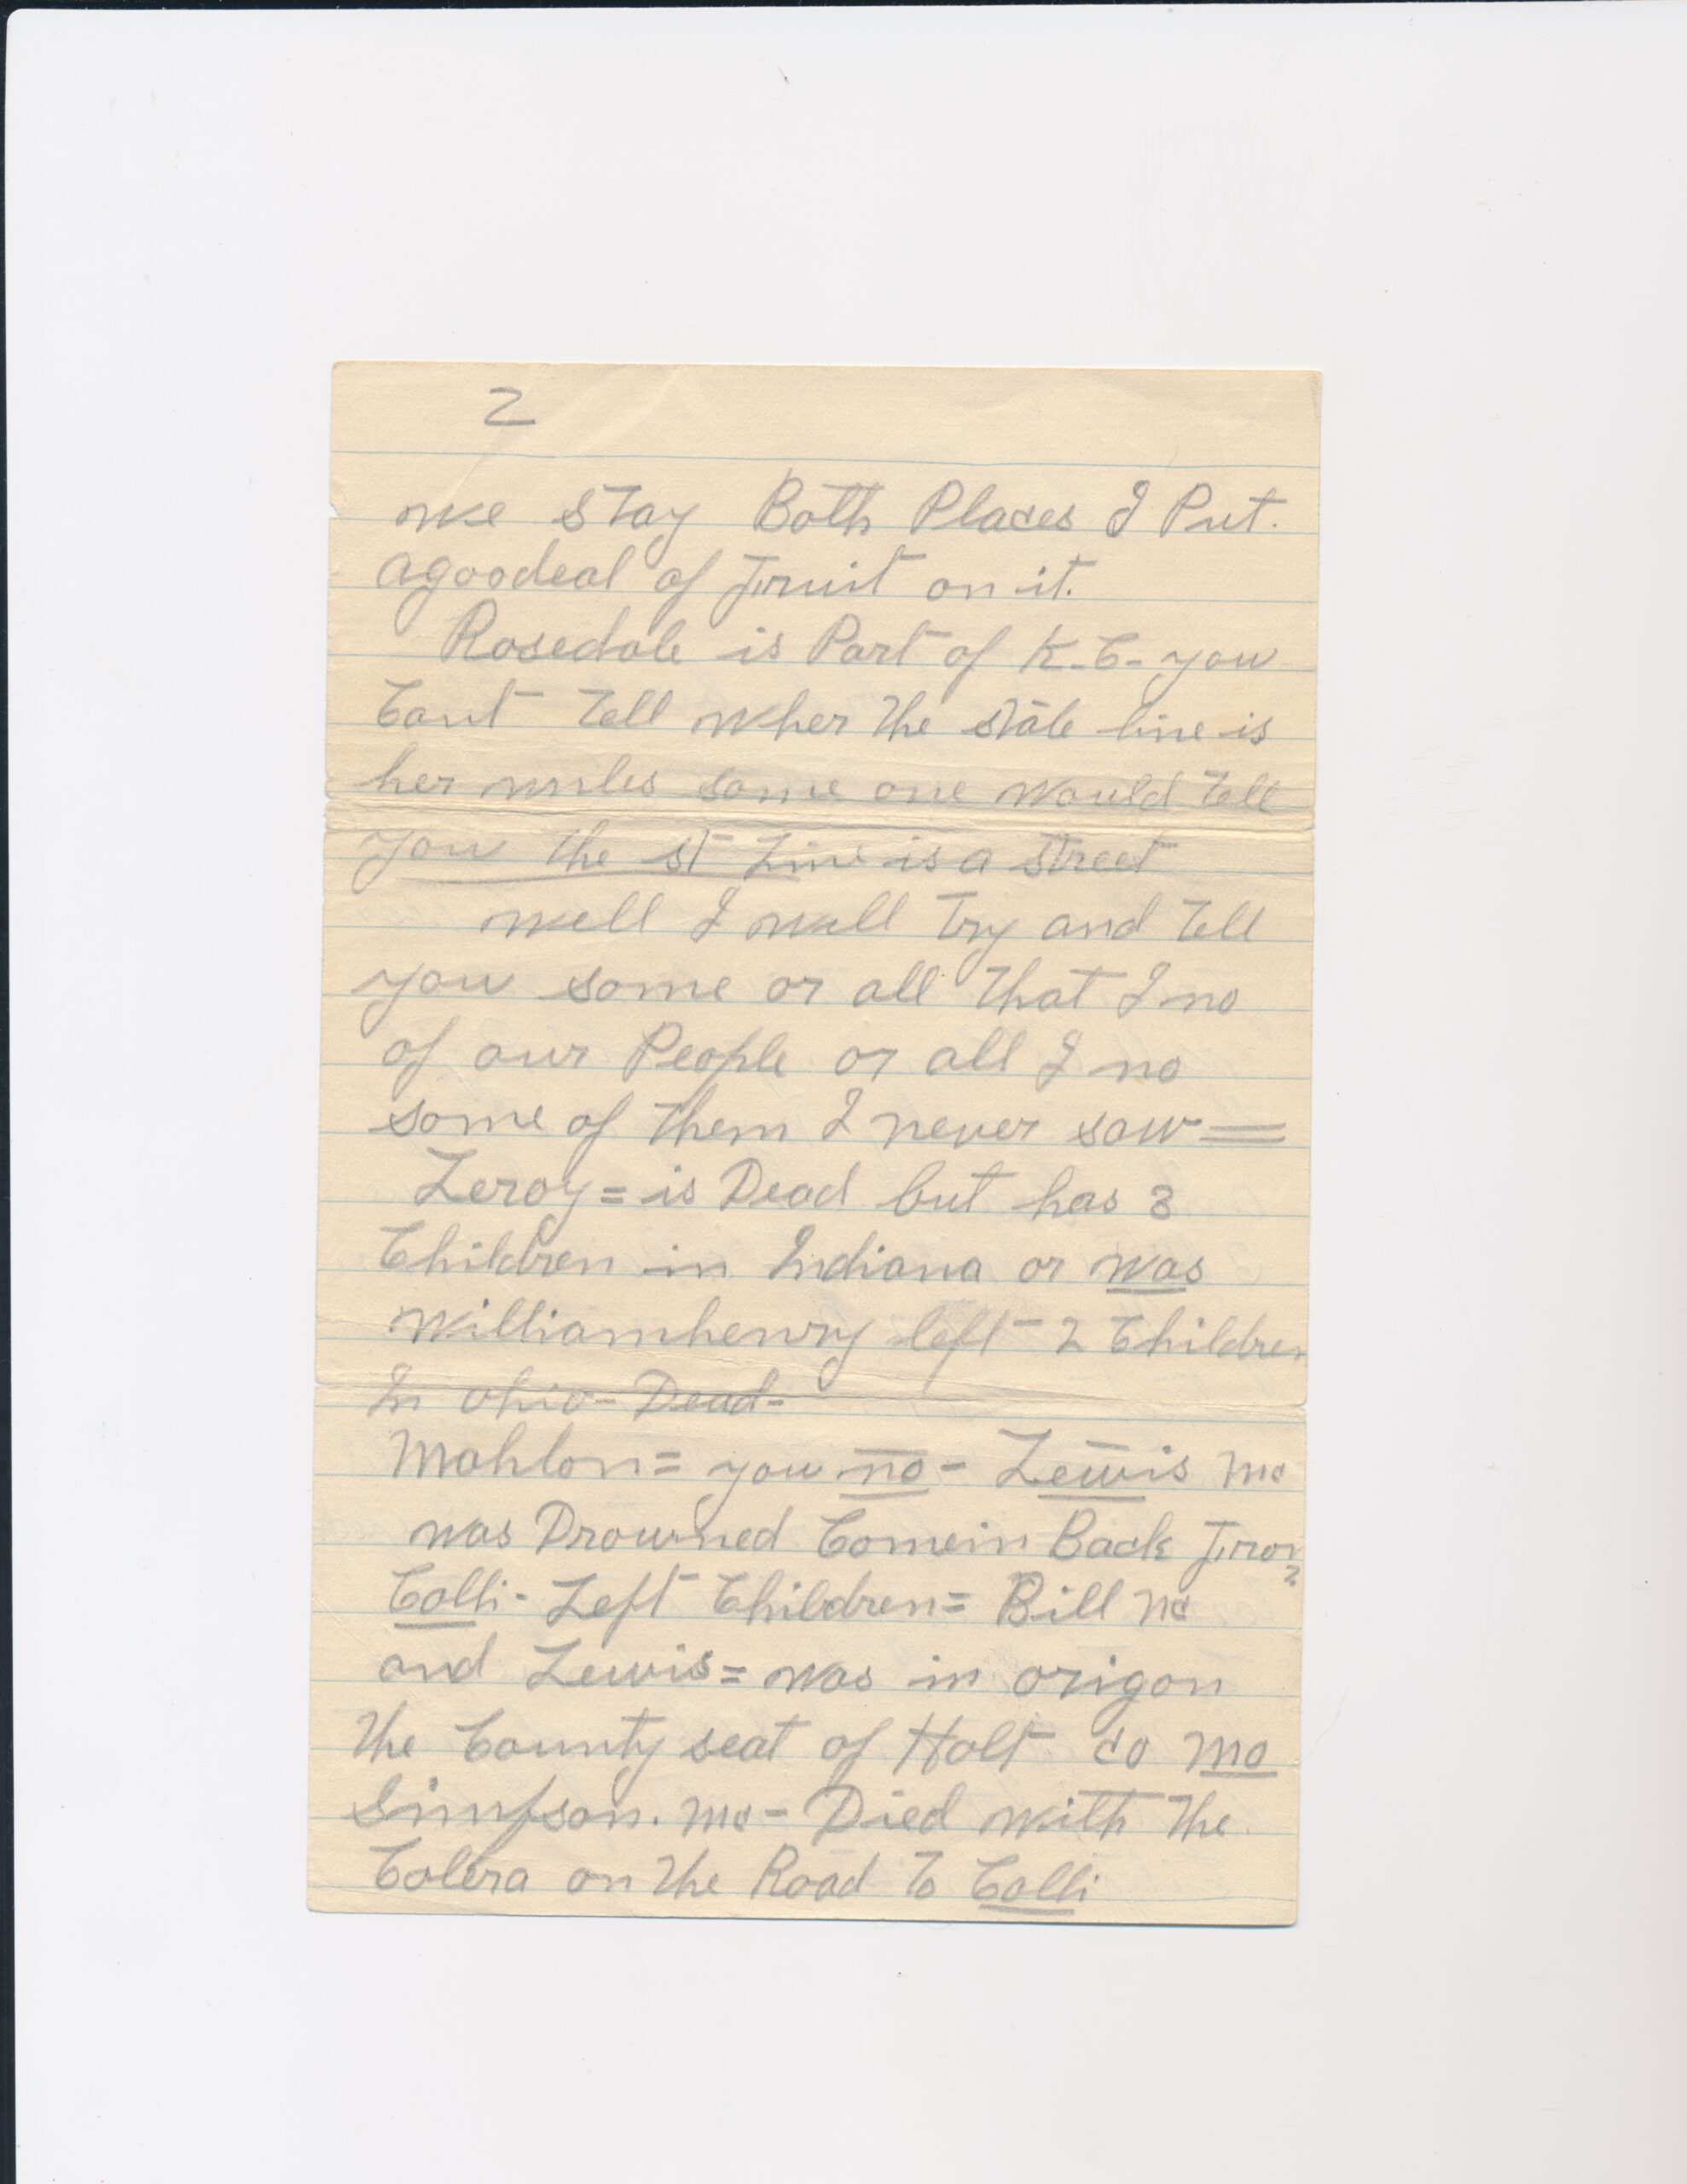 2
we stay Both Places I Put.
agoodeal of Fruit on it.
Rosedale is Part of K-C- you
Cant Tell wher the state line is
her unles some one would Tell
you the st Line is a street
well I will Try and Tell
you some or all that I no
of our People or all I no
some of them I never saw =
Leroy = is Dead but has 3
Children in Indiana or was
Williamhenry left 2 Children
In ohio - Dead -
Mahlon = you no - Lewis Mc
was Drowned Comein Back From
Calli - Left Children = Bill Mc
and Lewis = was in origon
the County seat of Holt co Mo
Simpson. Mc - Died with the
Colera on the Road To Calli